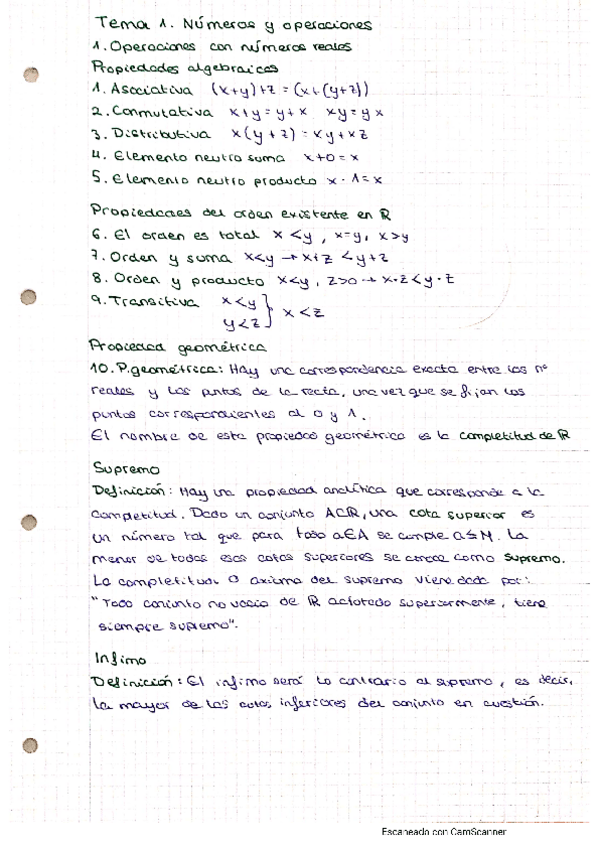 Tema 1. Números y operaciones
1. Operaciones con números reales
Propiedades algebraicas
1. Asociativa (x+y)+z=(x+(y+z))
2. Conmutativa x+y=y+x xy=yx
3. Distributiva x(y+z)=xy+xz
4. Elemento neutro suma x+0=x
5. Elemento neutro producto x·1=x
Propiedades del orden existente en R
6. El orden es total x<y, x=y, x>y
7. Orden y suma x<y→x+z<y+z
8. Orden y producto x<y, z>0→x·z<y·z
9. Transitiva x<y
y<z } x<z
Propiedad geométrica
10. P.geométrica: Hay una correspondencia exacta entre los nº
reales y los puntos de la recta, una vez que se fijan los
puntos correspondientes al 0 y 1.
El nombre de esta propiedad geométrica es la completitud de R
Supremo
Definición: Hay una propiedad analítica que corresponde a la
completitud. Dado un conjunto ACR, una cota superior es
un número tal que para todo a∈A se cumple a≤M. La
menor de todas esas cotas superiores se conoce como supremo.
La completitud o axioma del supremo viene dada por:
"Todo conjunto no vacío de R acotado superiormente, tiene
siempre supremo".
Infimo
Definición: El infimo será lo contrario al supremo, es decir,
la mayor de las cotas inferiores del conjunto en cuestión.
Escaneado con CamScanner